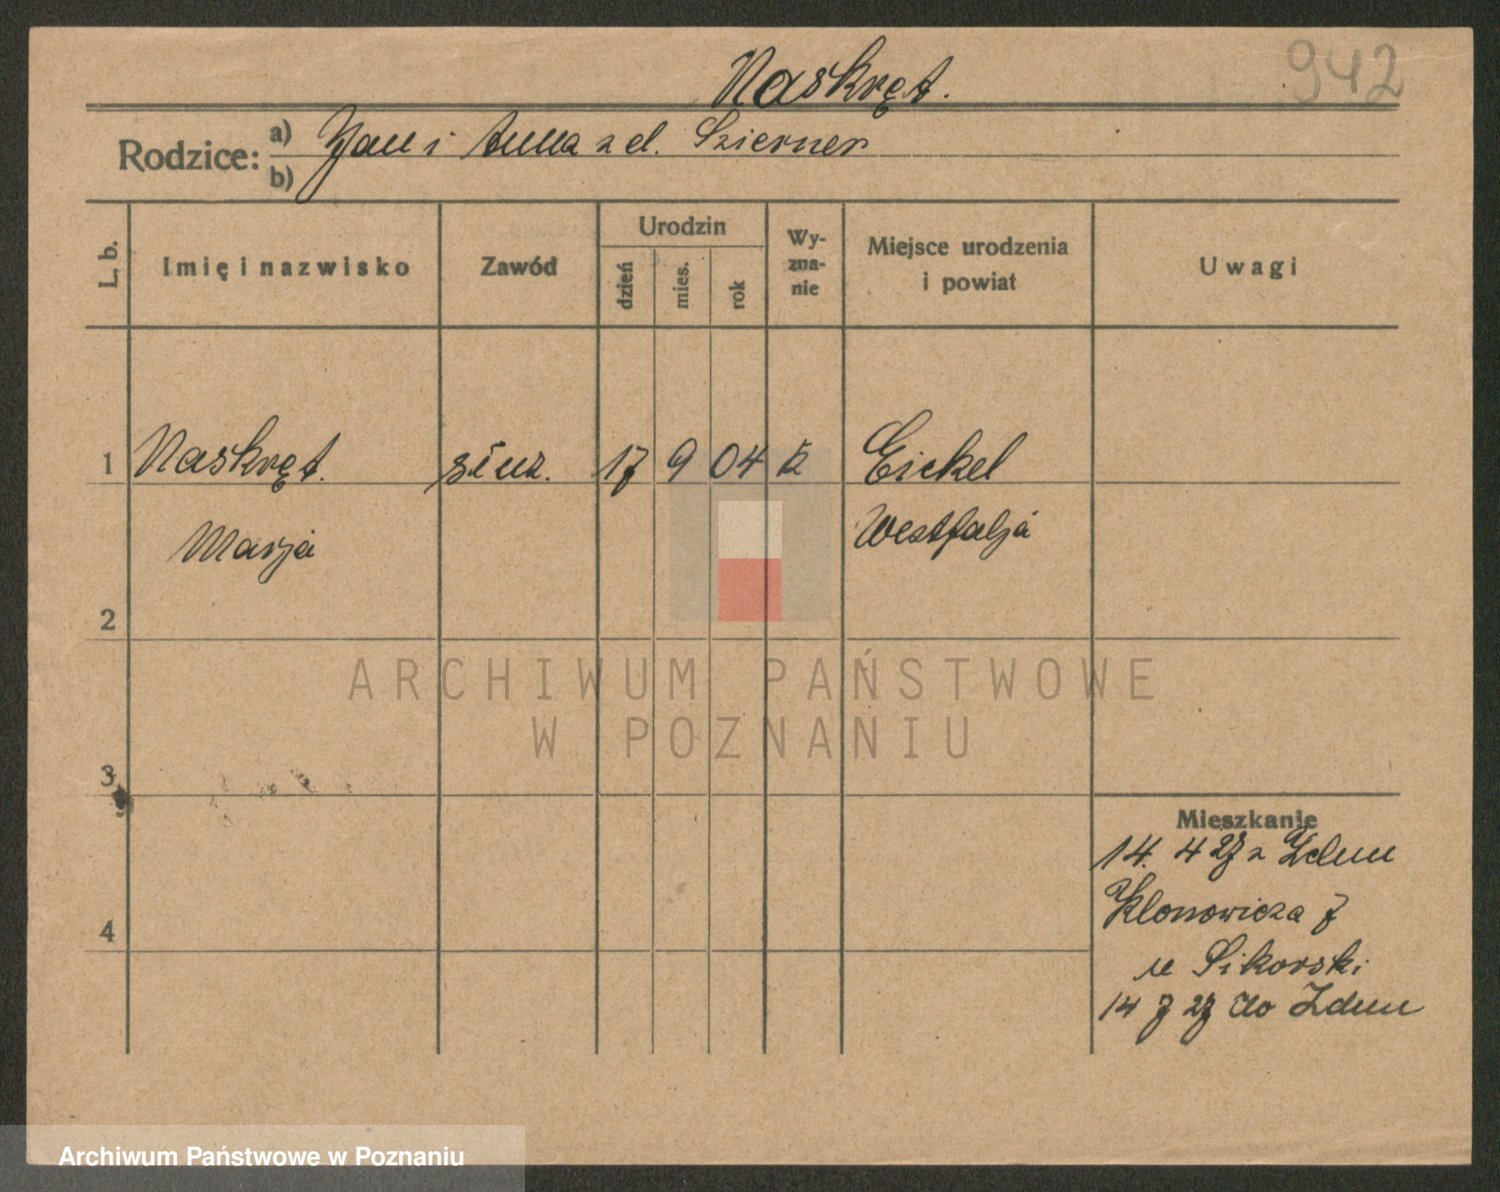 942
Naskręt.
Rodzice: a) Jan i Anna z d.
b)
L. b. Imię i nazwisko Zawód Urodzin Wy-zna-nie Miejsce urodzenia i powiat Uwagi
dzień mies. rok
1 Naskręt. służ. 17 9 04 k Eickel
Marja Westfalja
2
3
4
Mieszkanie
14. 4 27 z Zdun
Klonowicza 7
u Sikorski
14 7 27 do Zdun
ARCHIWUM PAŃSTWOWE
W POZNANIU
Archiwum Państwowe w Poznaniu